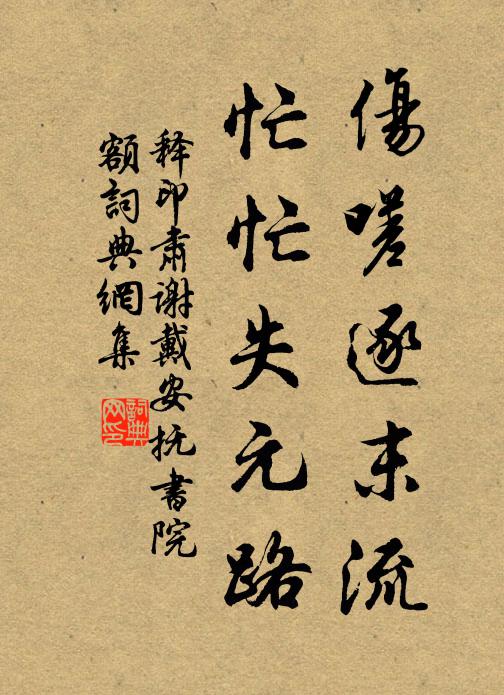 傷嗟逐末流
忙忙失元路
释印肃谢戴安抚書院
額詞典網集
詞典
网印